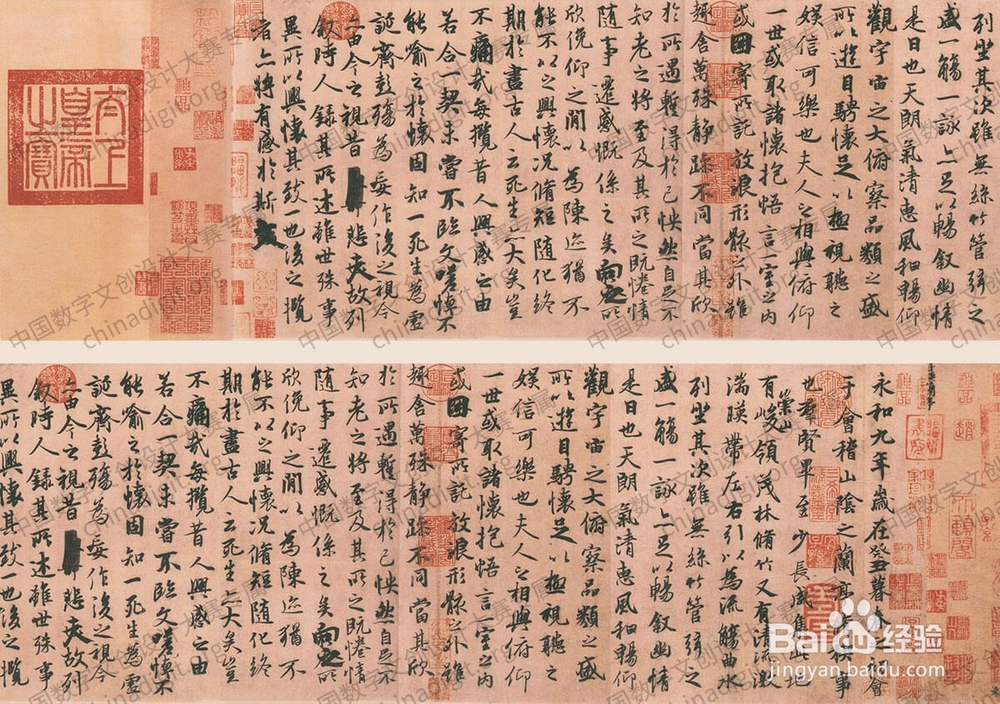 列坐其次雖無絲竹管弦之
盛一觴一詠亦足以暢敘幽情
是日也天朗氣清惠風和暢仰
觀宇宙之大俯察品類之盛
所以遊目騁懷足以極視聽之
娛信可樂也夫人之相與俯仰
一世或取諸懷抱悟言一室之內
或因寄所託放浪形骸之外雖
趣舍萬殊靜躁不同當其欣
於所遇蹔得於己怏然自足不
知老之將至及其所之既惓情
隨事遷感慨係之矣向之所
欣俛仰之閒以為陳迹猶不
能不以之興懷況脩短隨化終
期於盡古人云死生亦大矣豈
不痛哉每攬昔人興感之由
若合一契未嘗不臨文嗟悼不
能喻之於懷固知一死生為虛
誕齊彭殤為妄作後之視今
亦由今之視昔悲夫故列
敘時人錄其所述雖世殊事
異所以興懷其致一也後之攬
者亦將有感於斯文
太上皇帝之寶
永和九年歲在癸丑暮春之初會
于會稽山陰之蘭亭事
也群賢畢至少長咸集地
有崇山峻領茂林脩竹又有清流激
湍暎帶左右引以為流觴曲水
列坐其次雖無絲竹管弦之
盛一觴一詠亦足以暢敘幽情
是日也天朗氣清惠風和暢仰
觀宇宙之大俯察品類之盛
所以遊目騁懷足以極視聽之
娛信可樂也夫人之相與俯仰
一世或取諸懷抱悟言一室之內
或因寄所託放浪形骸之外雖
趣舍萬殊靜躁不同當其欣
於所遇蹔得於己怏然自足不
知老之將至及其所之既惓情
隨事遷感慨係之矣向之所
欣俛仰之閒以為陳迹猶不
能不以之興懷況脩短隨化終
期於盡古人云死生亦大矣豈
不痛哉每攬昔人興感之由
若合一契未嘗不臨文嗟悼不
能喻之於懷固知一死生為虛
誕齊彭殤為妄作後之視今
亦由今之視昔悲夫故列
敘時人錄其所述雖世殊事
異所以興懷其致一也後之攬
中国数字文创设计大赛专属
chinadigi.org
Baidu经验
jingyan.baidu.com